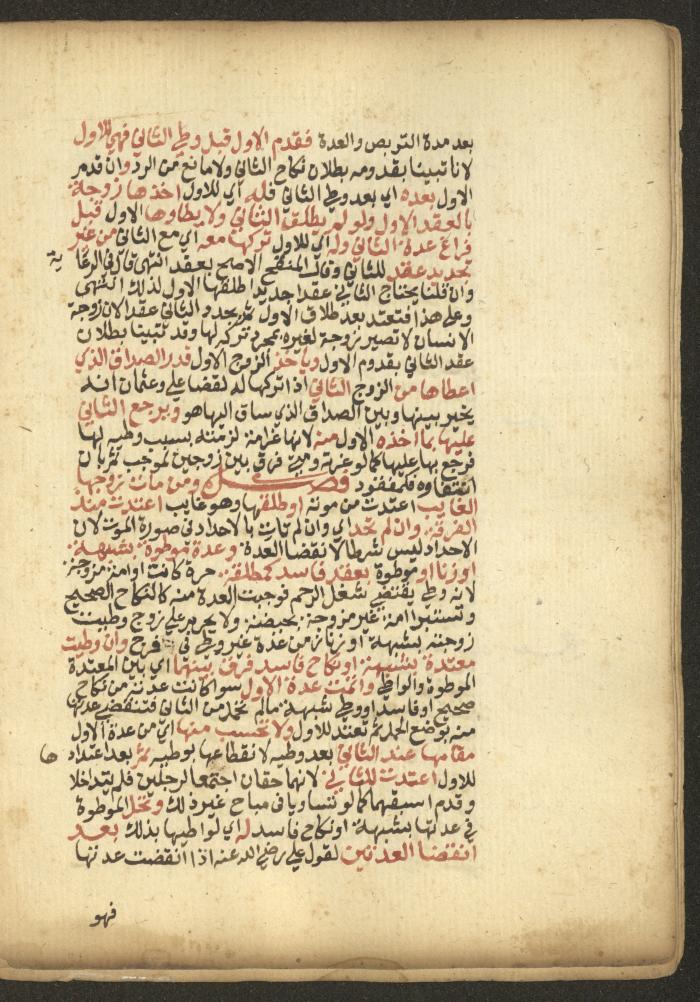 بعد مدة التربص والعدة فقدم الاول قبل وطي الثاني فهي للاول
لانا تبينا بقدومه بطلان نكاح الثاني ولا مانع من الرد وان قدم
الاول بعده اي بعد وطي الثاني فله اي للاول اخذها زوجة
بالعقد الاول ولو لم يطلق الثاني ولا يطاوها الاول قبل
فراغ عدة الثاني وله اي للاول تركها معه اي مع الثاني من غير
تجديد عقد للثاني وقال المنقح الاصح بعقد انتهى قال في الرعا
ية
وان قلنا يحتاج الثاني عقدا جديدا طلقها الاول لذلك انتهى
وعلى هذا فتعتد بعد طلاق الاول ثم يجدد الثاني عقدا لان زوجة
الانسان لا تصير زوجة لغيره بمجرد تركه لها وقد تبينا بطلان
عقد الثاني بقدوم الاول وياخذ الزوج الاول قدر الصداق الذي
اعطاها من الزوج الثاني اذا تركها له لقضا علي وعثمان انه
يخير بينها وبين الصداق الذي ساق اليها هو ويرجع الثاني
عليها بما اخذه الاول منه لانها غرامة لزمته بسبب وطيه لها
فرجع بها عليها كما لو غرته ومتى فرق بين زوجين لموجب ثم بان
انتفاوه فكمفقود فصل ومن مات زوجها
الغايب اعتدت من موته او طلقها وهو غايب اعتدت منذ
الفرقة وان لم تحد اي وان لم تات بالاحداد في صورة الموت لان
الاحداد ليس شرطا لانقضا العدة وعدة موطوة بشبهة
او زنا او موطوة بعقد فاسد كمطلقة حرة كانت او امة مزوجة
لانه وطي يقتضي شغل الرحم فوجبت العدة منه كالنكاح الصحيح
وتستبرا امة غير مزوجة بحيضة ولا يحرم على زوج وطيت
زوجته بشبهة او زنا زمن عدة غير وطي في فرج وان وطيت
معتدة بشبهة او نكاح فاسد فرق بينهما اي بين المعتدة
الموطوة والواطي واتمت عدة الاول سوا كانت عدته من نكاح
صحيح او فاسد او وطي بشبهة ما لم تحمل من الثاني فتنقضي عدتها
منه بوضع الحمل ثم تعتد للاول ولا يحتسب منها اي من عدة الاول
مقامها عند الثاني بعد وطيه لانقطاعها بوطيه ثم بعد اعتداد
ها
للاول اعتدت للثاني لانهما حقان اجتمعا لرجلين فلم يتداخلا
وقدم اسبقهما كما لو تساويا في مباح غير ذلك وتحل الموطوة
في عدتها بشبهة او نكاح فاسد له اي لواطيها بذلك بعد
انقضا العدتين لقول علي رضي الله عنه اذا انقضت عدتها
فهو